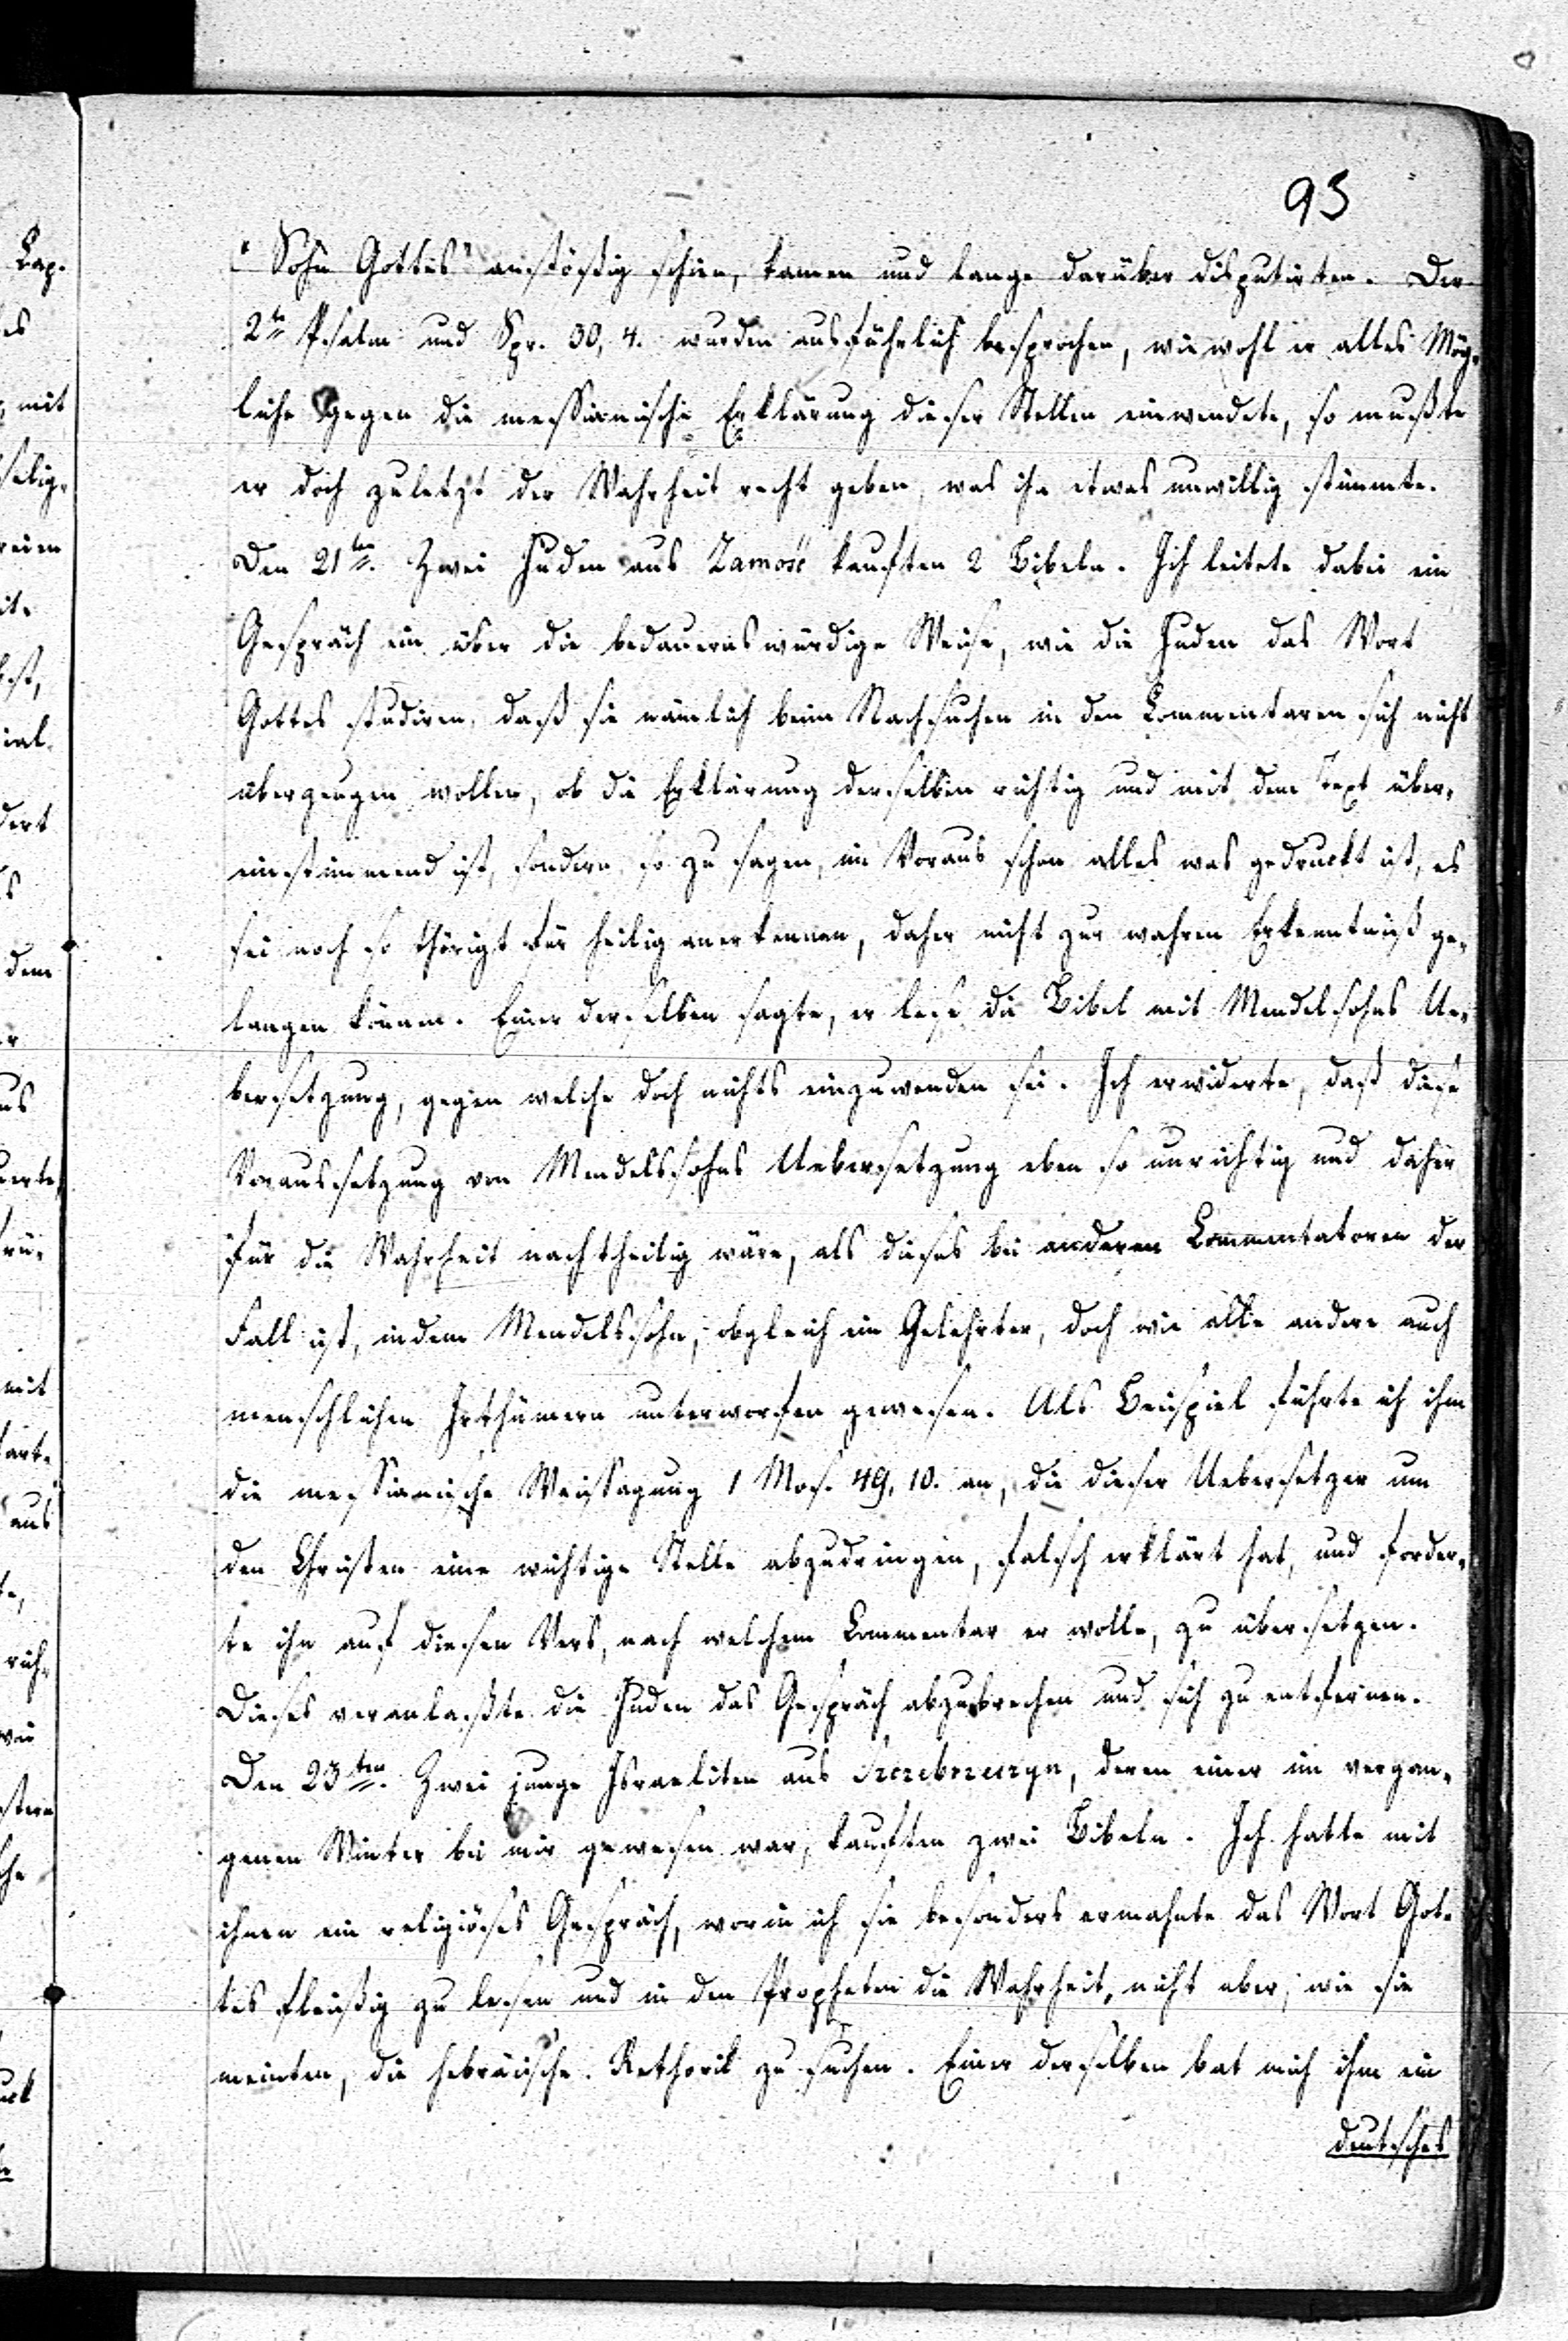 95
"Sohn Gottes" anstößig schien, kamen und lange darüber disputirten. Der
2te Psalm und Spr. 30, 4. wurden ausführlich besprochen, wiewohl er alles Mög-
liche gegen die messianische Erklärung dieser Stellen einwendete, so mußte
er doch zuletzt der Wahrheit recht geben, was ihn etwas unwillig stimmte.
Den 21ten. Zwei Juden aus Zamość kauften 2 Bibeln. Ich leitete dabei ein
Gespräch ein über die bedauernswürdige Weise, wie die Juden das Wort
Gottes studiren, daß sie nämlich beim Nachsuchen in den Commentaren sich nicht
überzeugen wollen, ob die Erklärung derselben richtig und mit dem Text über-
einstimmend ist, sondern so zu sagen, im Voraus schon alles was gedruckt ist, es
sei noch so thörigt für heilig anerkennen, daher nicht zur wahren Erkenntniß ge-
langen können. Einer derselben sagte, er lese die Bibel mit Mendelsohns Ue-
bersetzung, gegen welche doch nichts einzuwenden sei. Ich erwiderte, daß diese
Voraussetzung von Mendelssohns Uebersetzung eben so unrichtig und daher
für die Wahrheit nachtheilig wäre, als dieses bei anderen Commentatoren der
Fall ist, indem Mendelssohn, obgleich ein Gelehrter, doch wie alle andere auch
menschlichen Irthümern unterworfen gewesen. Als Beispiel führte ich ihm
die messianische Weissagung 1 Mos. 49, 10. an, die dieser Uebersetzer um
den Christen eine wichtige Stelle abzudringen, falsch erklärt hat, und forder-
te ihn auf diesen Vers, nach welchem Commentar er wolle, zu übersetzen.
Dieses veranlaßte die Juden das Gespräch abzubrechen und sich zu entfernen.
Den 23ten. Zwei junge Israeliten aus Szczebrzeszyn, deren einer im vergan-
genen Winter bei mir gewesen war, kauften zwei Bibeln. Ich hatte mit
ihnen ein religiöses Gespräch, worin ich sie besonders ermahnte das Wort Got-
tes fleißig zu lesen und in den Propheten die Wahrheit, nicht aber, wie sie
meinten, die hebräische Rethorik zu suchen. Einer derselben bat mich ihm ein
deutsches